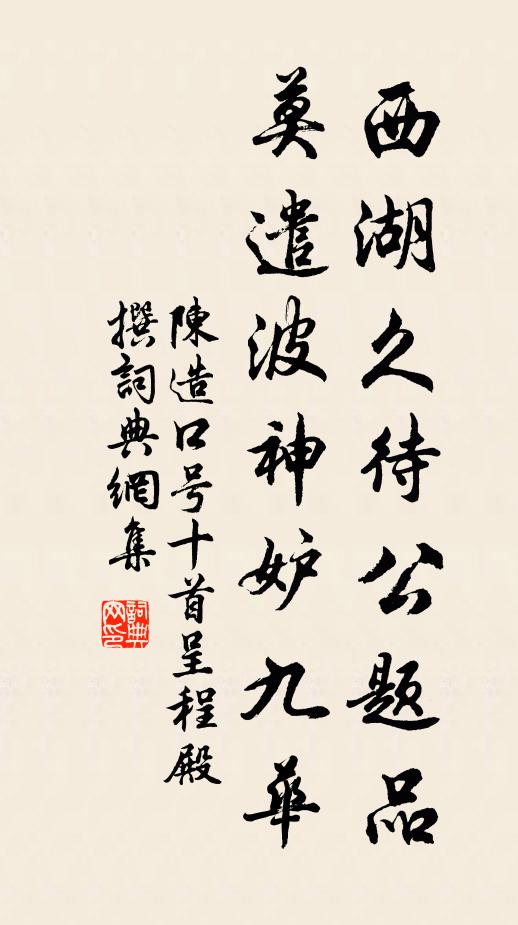 西湖久待公題品
莫遣波神妒九華
陳造口号十首呈程殿
撰詞典網集
詞典网印